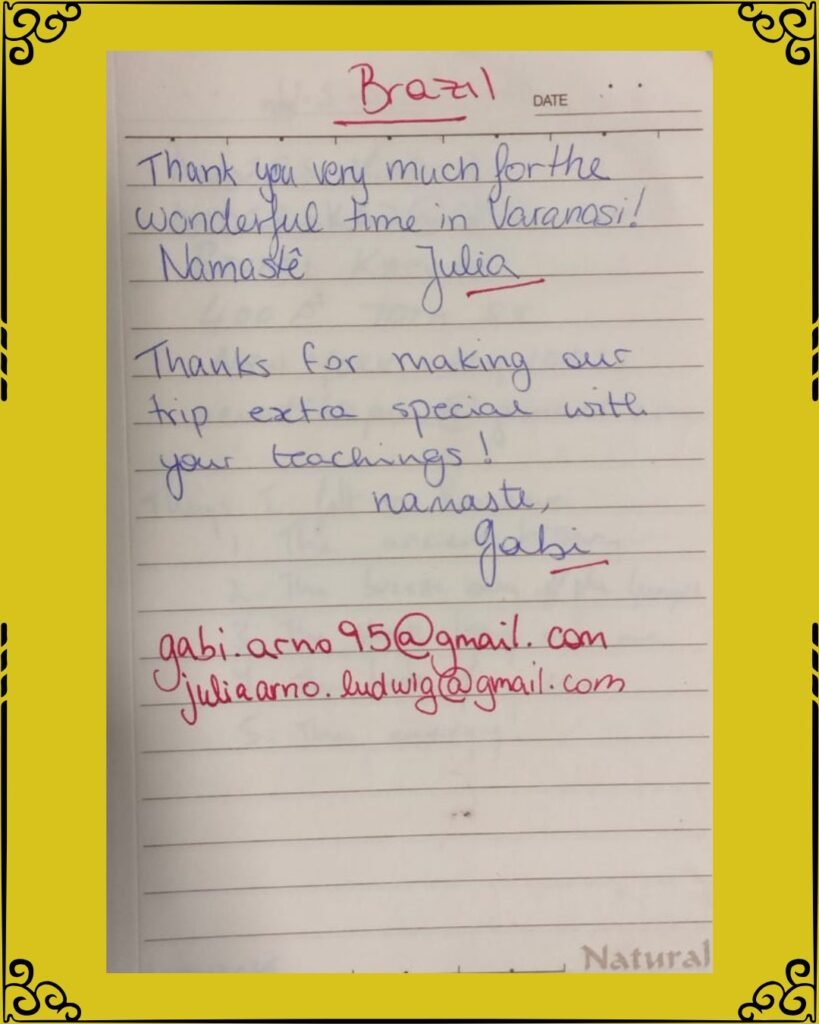 Brazil
DATE
Thank you very much for the
wonderful time in Varanasi!
Namastê Julia
Thanks for making our
trip extra special with
your teachings!
namaste,
gabi
gabi.arno95@gmail.com
juliaarno.ludwig@gmail.com
Natural